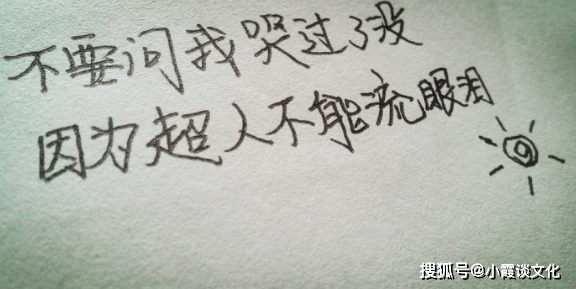 不要问我哭过了没
因为超人不能流眼泪
搜狐号@小霞谈文化